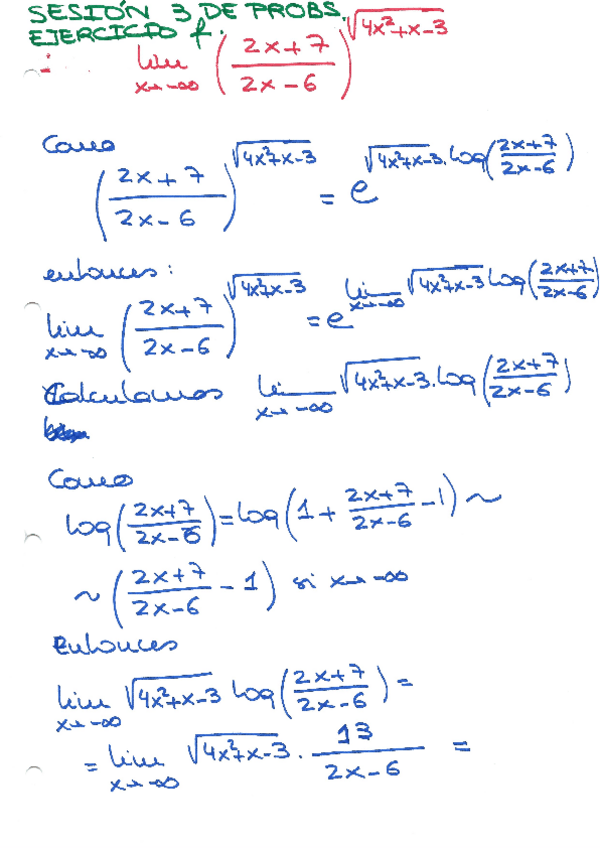 SESIÓN 3 DE PROBS.
EJERCICIO f.
lim x→-∞ ((2x+7)/(2x-6))^√(4x²+x-3)
Como
((2x+7)/(2x-6))^√(4x²+x-3) = e^(√(4x²+x-3)·log((2x+7)/(2x-6)))
entonces:
lim x→-∞ ((2x+7)/(2x-6))^√(4x²+x-3) = e^(lim x→-∞ √(4x²+x-3) log((2x+7)/(2x-6)))
Calculamos lim x→-∞ √(4x²+x-3)·log((2x+7)/(2x-6))
Como
log((2x+7)/(2x-6)) = log(1 + (2x+7)/(2x-6) - 1) ~
~ ((2x+7)/(2x-6) - 1) si x→-∞
Entonces
lim x→-∞ √(4x²+x-3) log((2x+7)/(2x-6)) =
= lim x→-∞ √(4x²+x-3) · 13/(2x-6) =